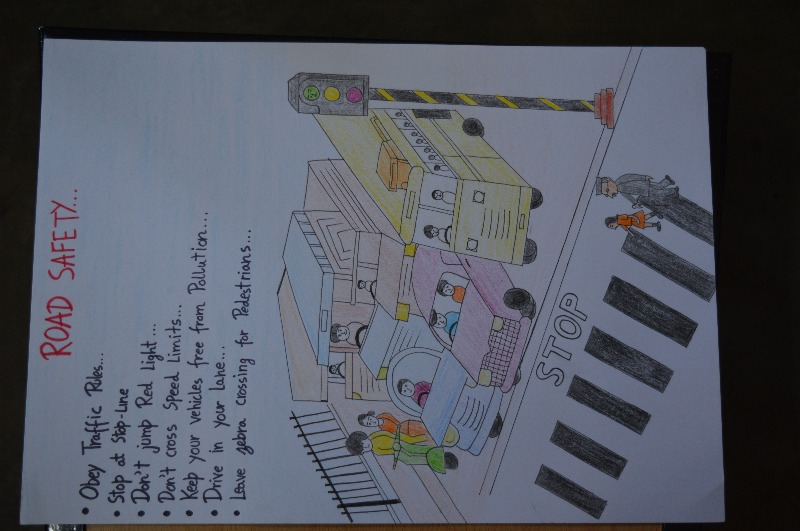 ROAD SAFETY...
• Obey Traffic Rules...
• Stop at Stop-Line
• Don't jump Red Light...
• Don't cross Speed Limits...
• Keep your vehicles free from Pollution....
• Drive in your Lane...
• Leave zebra crossing for Pedestrians...
STOP